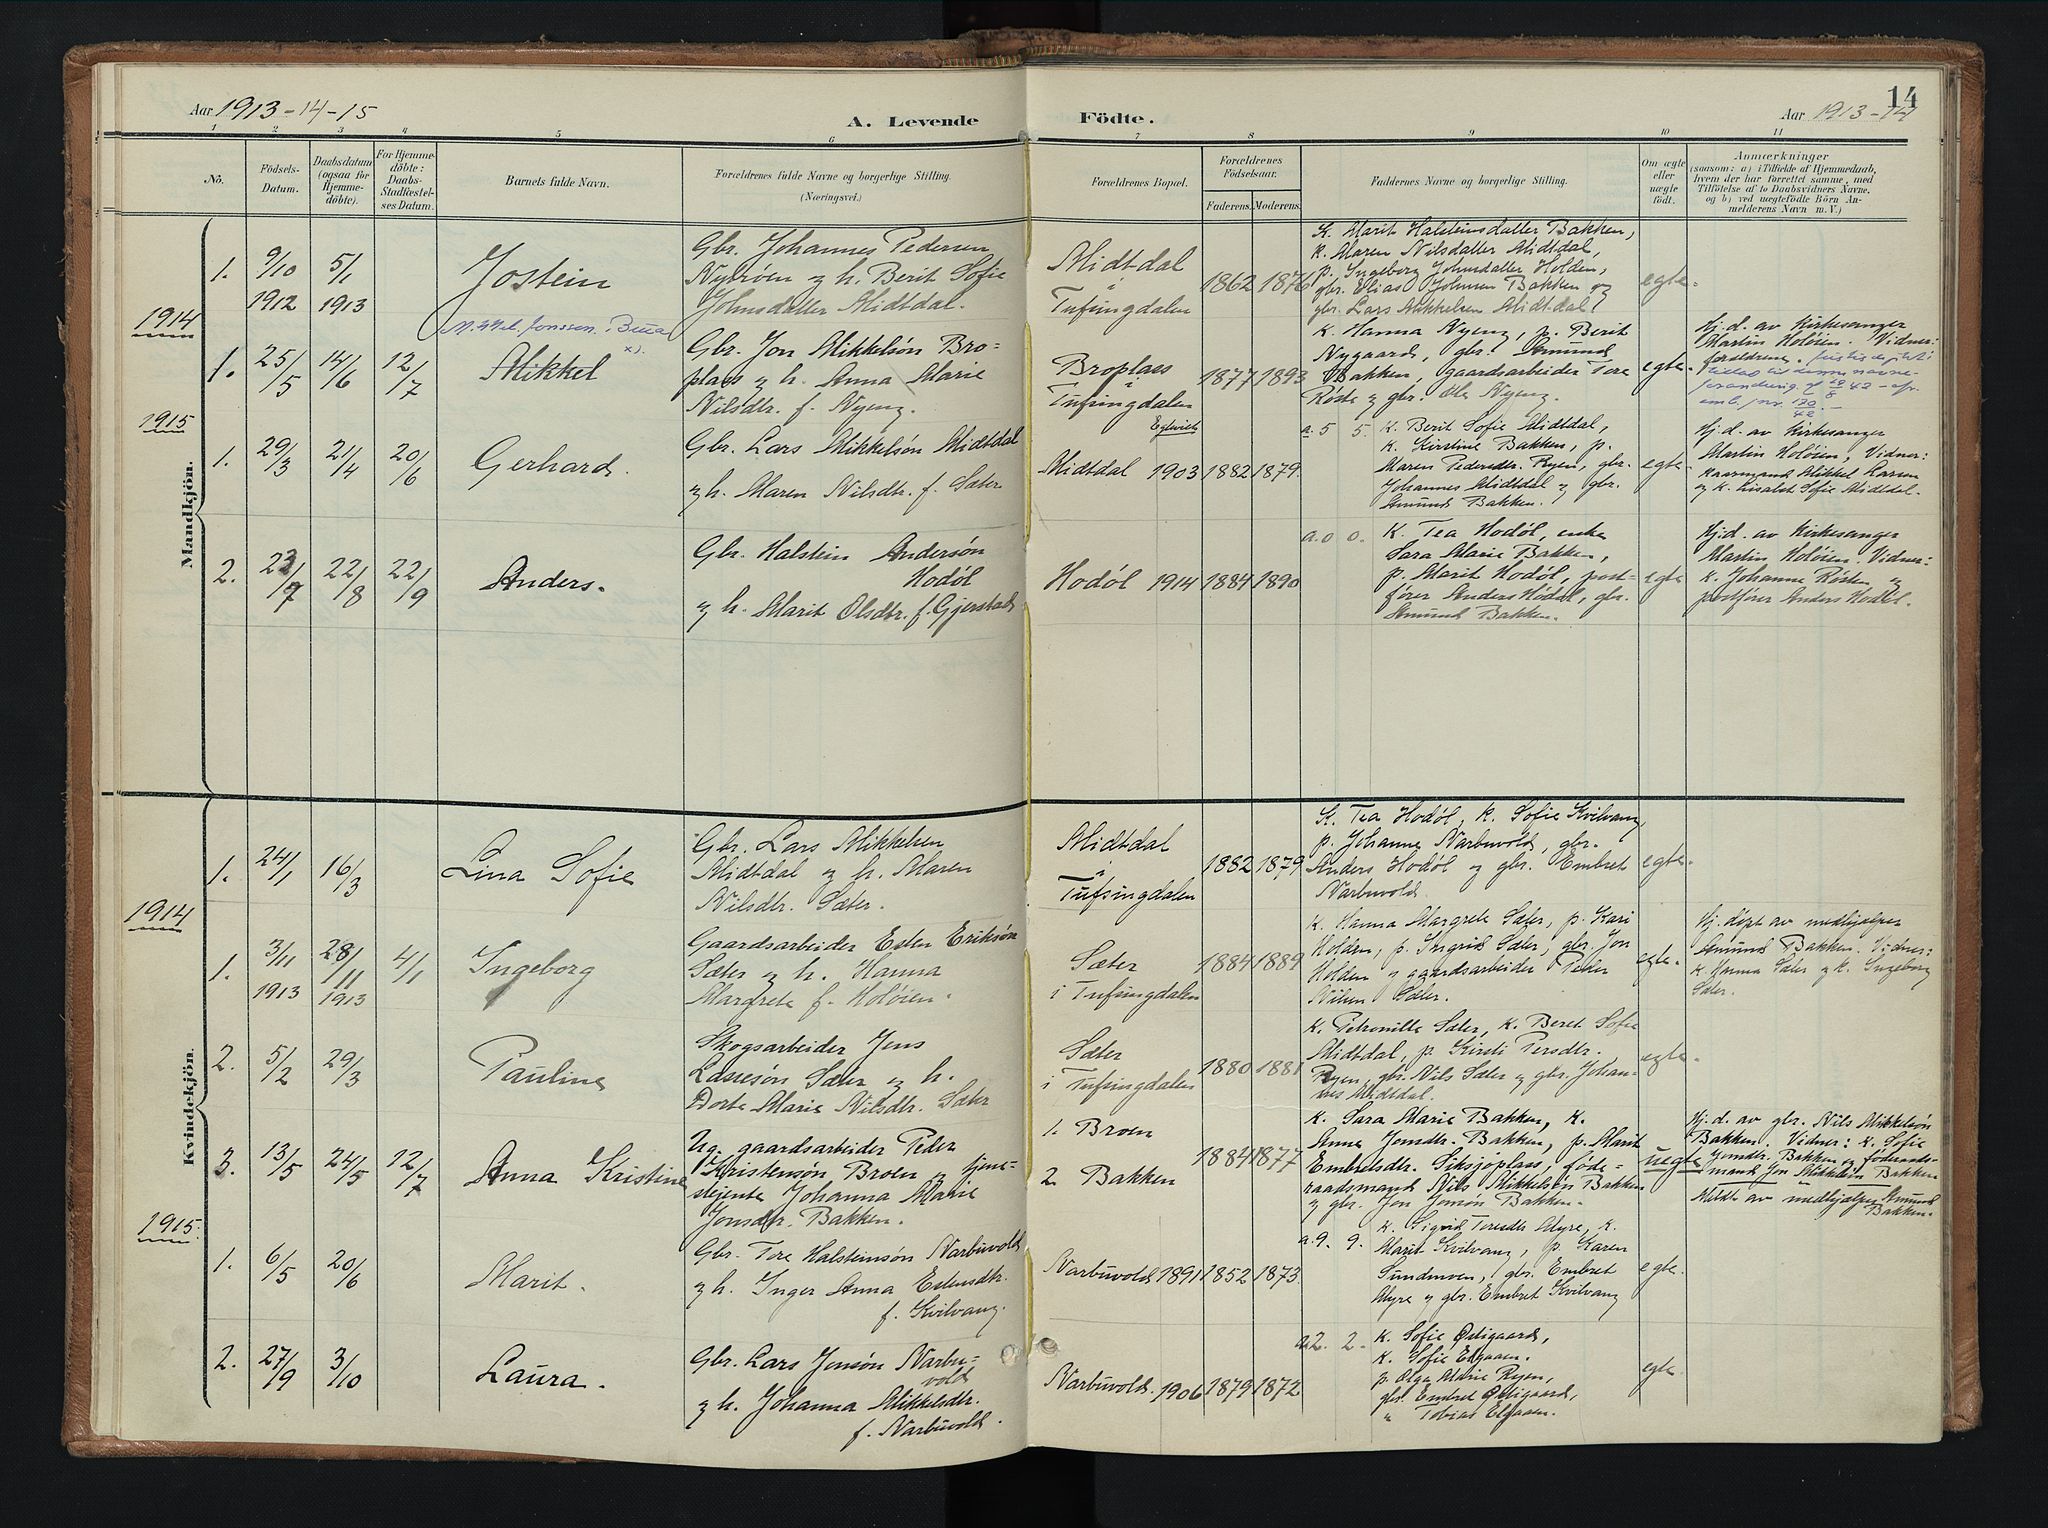 14
Aar 1913-14-15
A. Levende Födte.
Aar 1913-14
1 2 3 4 5 6 7 8 9 10 11
No.
Födsels-
Datum.
Daabsdatum
(ogsaa for
Hjemme-
döbte).
For Hjemme-
döbte:
Daabs-
Stadfæstel-
ses Datum.
Barnets fulde Navn.
Forældrenes fulde Navne og borgerlige Stilling.
(Næringsvei.)
Forældrenes Bopæl.
Forældrenes
Födselsaar.
Faderens. Moderens.
Faddernes Navne og borgerlige Stilling.
Om ægte
eller
uægte
födt.
Anmærkninger
(saasom: a) i Tilfælde af Hjemmedaab,
hvem der har forrettet samme, med
Tilföielse af to Daabsvidners Navne,
og b) ved uægtefödte Börn An-
melderens Navn m. V.)
Mandkjön.
1. 9/10 1912 5/1 1913
Jostein
Gbr. Johannes Pedersen
Nyrøen og h. Berit Sofie
Johnsdatter Midtdal.
Midtdal
i
Tufsingdalen
1862 1876
K. Marit Halsteinsdatter Bakken,
k. Maren Nilsdatter Midtdal,
p. Ingeborg Johnsdatter Holden,
gbr. Elias Johnsen Bakken og
gbr. Lars Mikkelsen Midtdal
egte.
1914
1. 25/5 14/6 12/7
Mikkel Jonssen Bua
x).
Mikkel
Gbr. Jon Mikkelsøn Bro-
plass og h. Anna Marie
Nilsdtr. f. Nyeng.
Broplass
i
Tufsingdalen
1877 1893
k. Hanna Nyeng, p. Berit
Nygaard, gbr. Amund
Bakken, gaardsarbeider Tore
Røste og gbr. Ole Nyeng.
egte.
Hj.d. av Kirkesanger
Martin Holøien. Vidner:
forældrene.
1915
1. 29/3 21/4 20/6
Gerhard.
Gbr. Lars Mikkelsøn Midtdal
og h. Maren Nilsdtr. f. Sæter
Egtevid
Midtdal 1903 1882 1879.
a. 5 5. k. Berit Sofie Midtdal,
k. Kirstine Bakken, p.
Maren Pedersdtr. Ryen, gbr.
Johannes Midtdal og gbr.
Amund Bakken.
egte
Hj.d. av Kirkesanger
Martin Holøien, Vidner:
kaarmand Mikkel Larsen
og k. Lisabet Sofie Midtdal.
2. 23/7 22/8 22/9
Anders.
Gbr. Halstein Andersøn
Hodøl
og h. Marit Olsdtr. f. Gjerstad
Hodøl 1914 1884 1890
a. 0 0. k. Tea Hodøl, enke
Sara Marie Bakken,
p. Marit Hodøl, post-
fører Anders Hodøl, gbr.
Amund Bakken.
egte
Hj.d. av Kirkesanger
Martin Holøien. Vidner:
k. Johanne Røsten og
postfører Anders Hodøl.
Kvindekjön.
1. 24/1 16/3
Lina Sofie
Gbr. Lars Mikkelsen
Midtdal og h. Maren
Nilsdtr. Sæter.
Midtdal
i
Tufsingdalen
1882 1879
K. Tea Hodøl, k. Sofie Kvilvang,
p. Johanne Narbuvold, gbr.
Anders Hodøl og gbr. Embret
Narbuvold.
egte.
1914
1. 3/11 1913 28/11 1913 4/1
Ingeborg
Gaardsarbeider Esten Eriksøn
Sæter og h. Hanna
Margrete f. Holøien.
Sæter
i Tufsingdalen
1884 1889
k. Hanna Margrete Sæter, p. Kari
Holden, p. Ingrid Sæter, gbr. Jon
Holden og gaardsarbeider Peder
Nilsen Sæter.
egte.
Hj. døpt av medhjælper
Amund Bakken. Vidner:
k. Hanna Sæter og k. Ingeborg
Sæter.
2. 5/2 29/3
Pauline
Skogsarbeider Jens
Lassesøn Sæter og h.
Dorte Marie Nilsdtr. Sæter
Sæter
i Tufsingdalen
1880 1881
k. Petronille Sæter, k. Beret Sofie
Midtdal, p. Kirsti Persdtr.
Ryen, gbr. Nils Sæter og gbr. Johan-
nes Midtdal.
egte.
3. 13/5 24/5 12/7
Anna Kristine
Ug. gaardsarbeider Peder
Kristensøn Broen og tjene-
stejente Johanna Marie
Jonsdtr. Bakken.
1. Broen
2. Bakken
1884 1877
k. Sara Marie Bakken, k.
Anne Jonsdtr. Bakken, p. Marit
Embretsdtr. Siksjøplass, føde-
raadsmand Nils Mikkelsen Bakken
og gbr. Jon Jonsøn Bakken.
uegte
Hj.d. av gbr. Nils Mikkelsøn
Bakken. Vidner: k. Sofie
Jonsdtr. Bakken og føderaads-
mand Jon Mikkelsøn Bakken
Meldt av medhjælper Amund
Bakken.
1915.
1. 6/5 20/6
Marit.
Gbr. Tore Halsteinsøn Narbuvold
og h. Inger Anna Estensdtr.
f. Kvilvang.
Narbuvold 1891 1852 1873.
a. 9. 9. k. Sigrid Toresdtr Myre, k.
Marit Kvilvang, p. Karen
Sundmoen, gbr. Embret
Myre og gbr. Embret Kvilvang
egte.
2. 27/9 3/10
Laura.
Gbr. Lars Jensøn Narbu-
vold
og h. Johanna Mikkelsdtr.
f. Narbuvold.
Narbuvold. 1906 1879 1872.
a. 2. 2. k. Sofie Østigaard,
k. Sofie Elgaaen.
p. Olga Marie Ryen,
gbr. Embret Østigaard,
" Tobias Elgaaen.
egte.